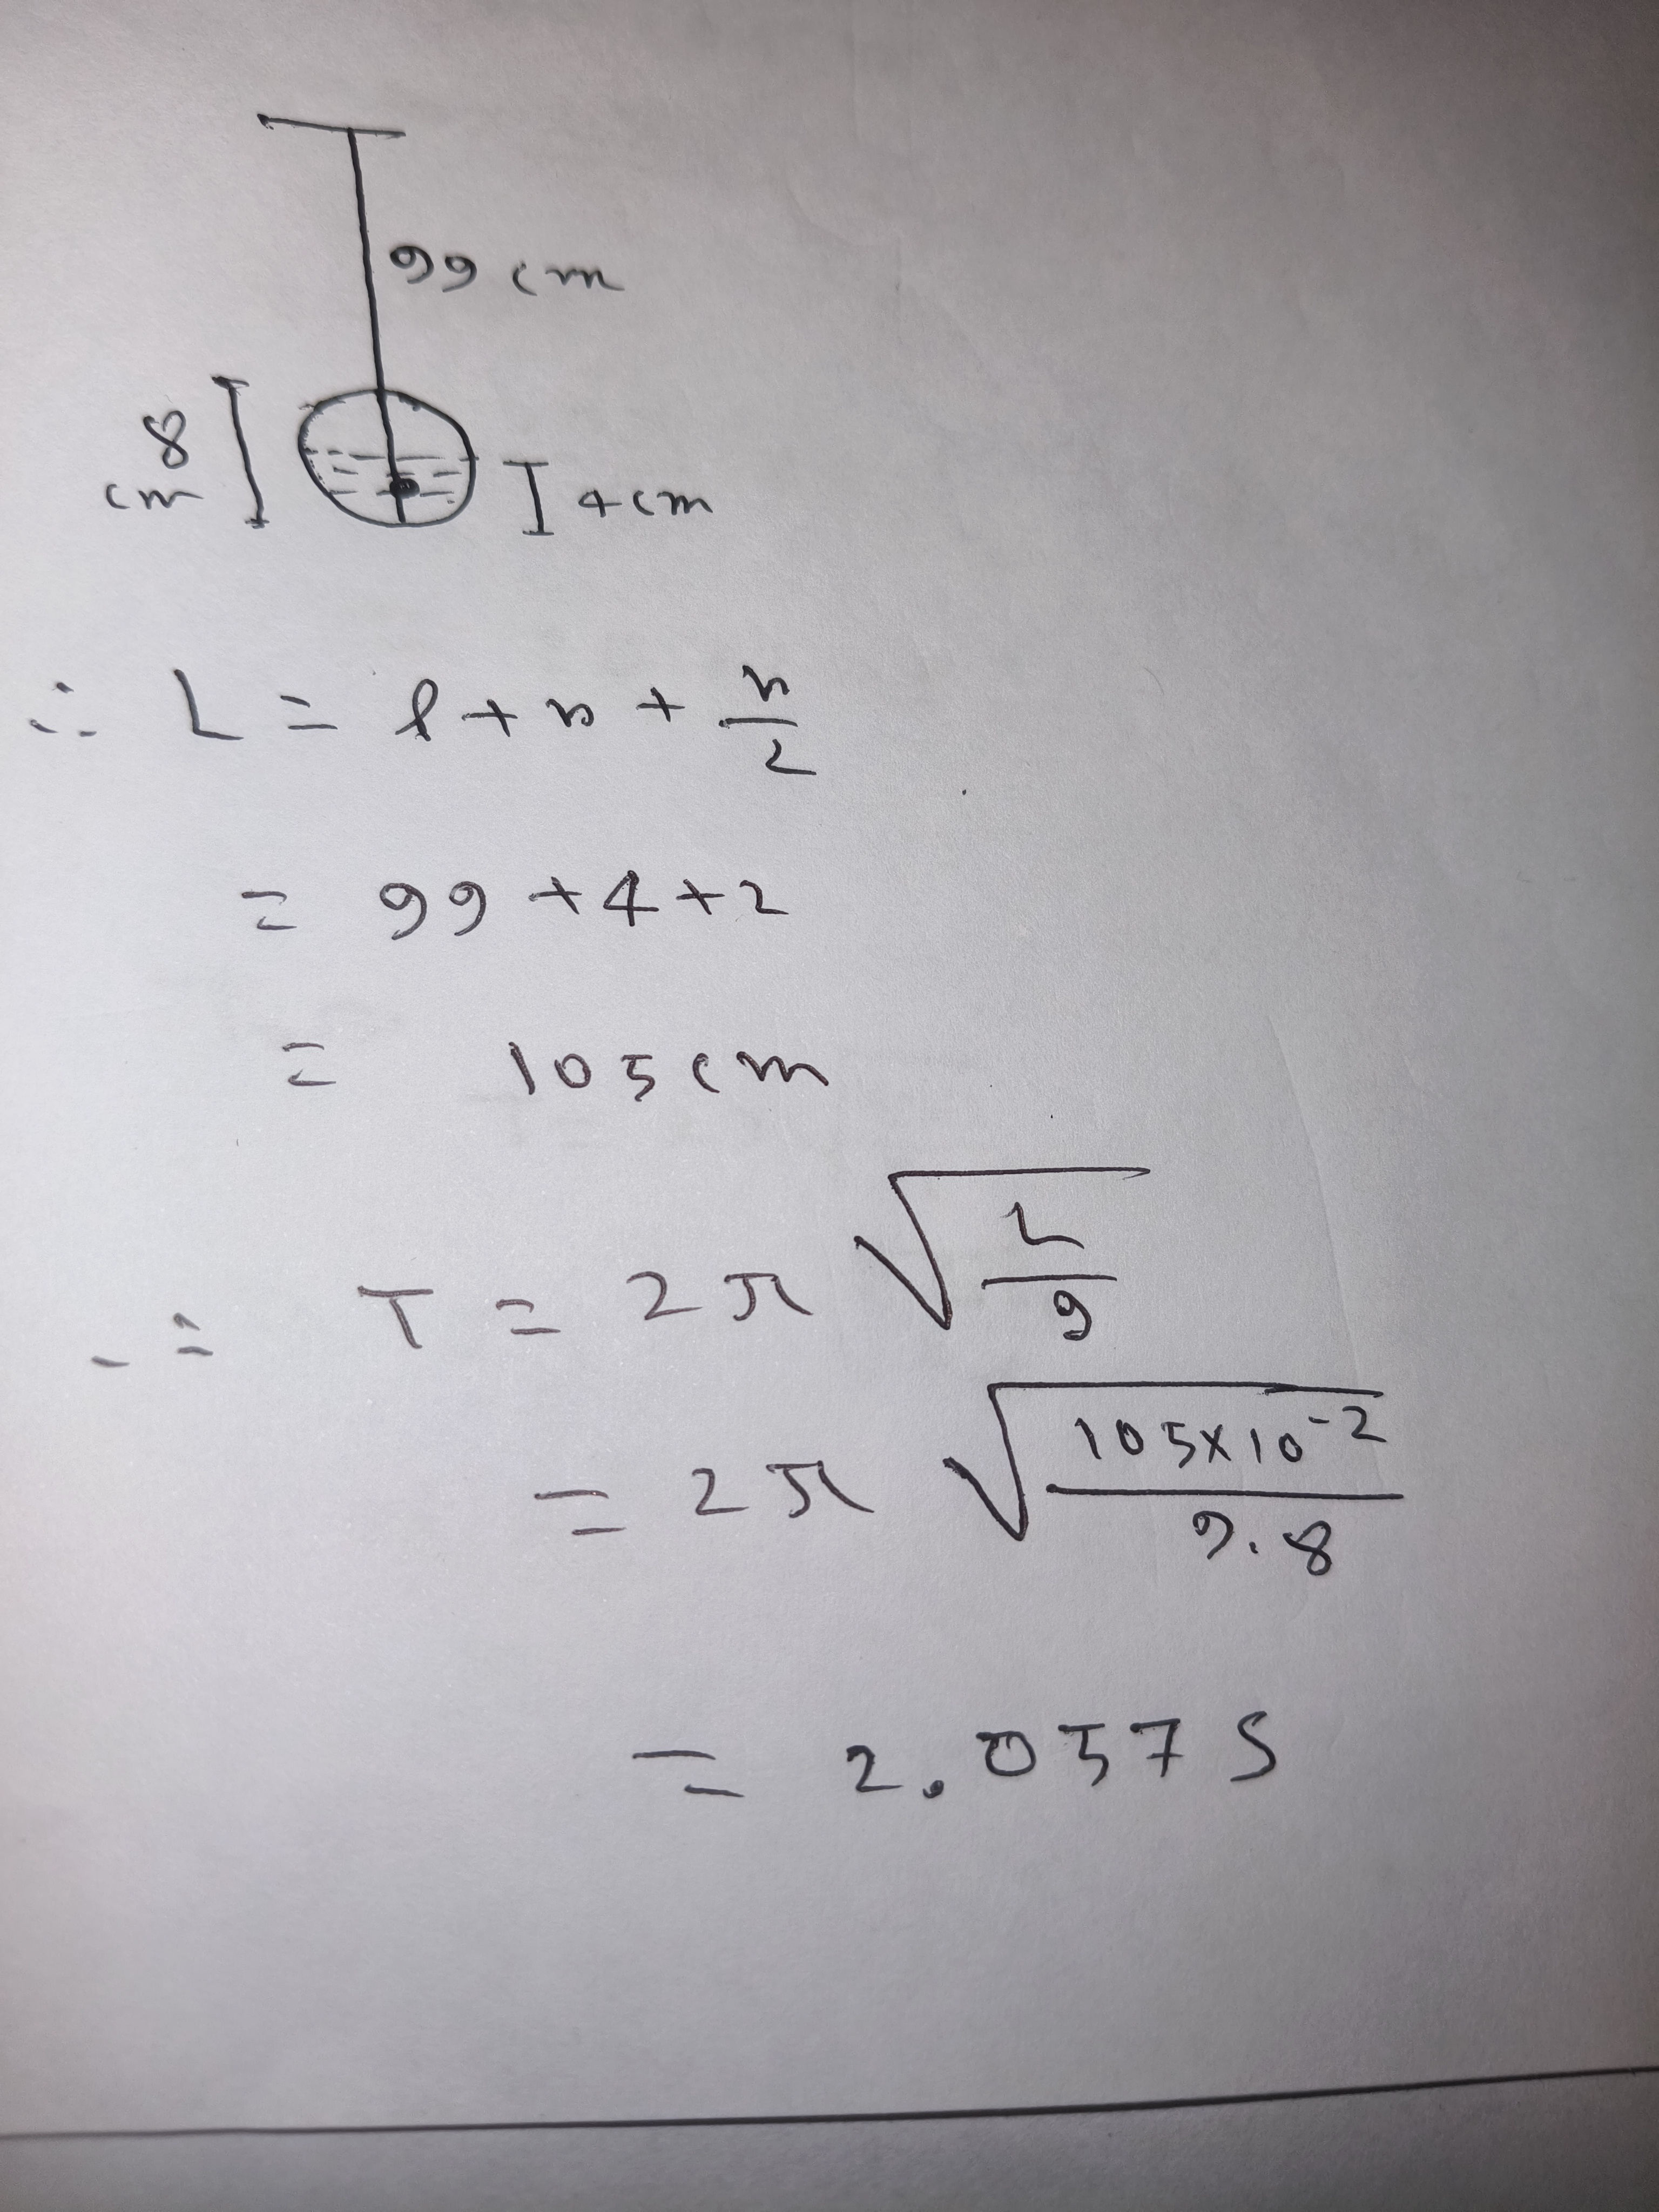 99 cm
8
cm
4cm
∴ L = l + r + r/2
= 99 + 4 + 2
= 105 cm
∴ T = 2π √(L/g)
= 2π √(105×10⁻²/9.8)
= 2.057 s